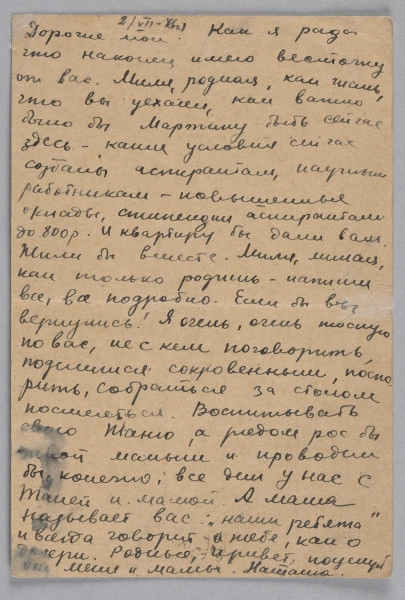 2/VII-46г
Дорогие мои! Как я рада
что наконец имею весточку
от вас. Миля, родная, как жаль,
что вы уехали, как важно
было бы Мартину быть сейчас
здесь - какие условия сейчас
созданы аспирантам, научным
работникам - повышенные
оклады, стипендии аспирантам
до 800р. И квартиру бы дали вам.
Жили бы вместе. Миля, милая,
как только родишь - напиши
все, все подробно. Если бы вы
вернулись! Я очень, очень тоскую
по вас, не с кем поговорить,
поделиться сокровенным, поспо
рить, собраться за столом
посмеяться. Воспитывать
свою Таню, а рядом рос бы
твой малыш и проводили
бы, конечно, все дни у нас с
Таней и мамой. А мама
называет вас: "наши ребята"
и всегда говорит о тебе, как о
дочери. Родные, привет, поцелуй
от меня и мамы. Наташа.